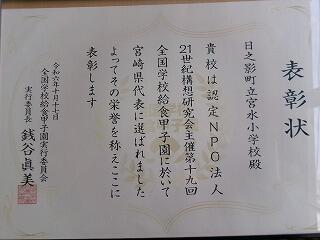 表彰状
日之影町立宮水小学校殿
貴校は認定NPO法人
21世紀構想研究会主催第十九回
全国学校給食甲子園に於いて
宮崎県代表に選ばれました
よってその栄誉を称えここに
表彰します
令和六年十月十七日
全国学校給食甲子園実行委員会
実行委員長 銭谷眞美